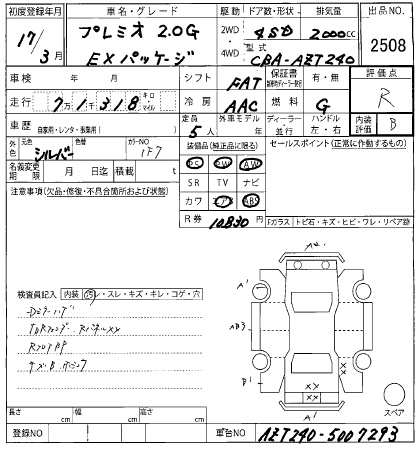 初度登録年月
17/3月
車名・グレード
プレミオ 2.0G
EXパッケージ
駆動 ドア数・形状 排気量
2WD 4SD 2000cc
4WD 型式 CBA-AZT240
出品NO.
2508
車検 年 月
シフト FAT
保証書 有・無
評価点
R
走行 7万1千318 キロ・マイル
冷房 AAC
燃料 G
車歴 自家用・レンタ・事業用( )
定員 5人
外車モデル 年
ディーラー・並行
ハンドル 左・右
内装評価 B
外色 元色 シルバー 色替 カラーNO 1F7
装備品(純正品に限る)
セールスポイント(正常に作動するもの)
PS PW AW
名義変更期限 月 日迄 積載 t
SR TV ナビ
注意事項(欠品・修復・不具合箇所および状態)
カワ エアB ABS
R券 10830円
Fガラス トビ石・キズ・ヒビ・ワレ・リペア跡
検査員記入 内装 ・スレ・キズ・キレ・コゲ・穴
A1
AB3
B1
XX
XX
A1
スペア
長さ cm 幅 cm 高さ cm
登録NO
車台NO AZT240-5007293